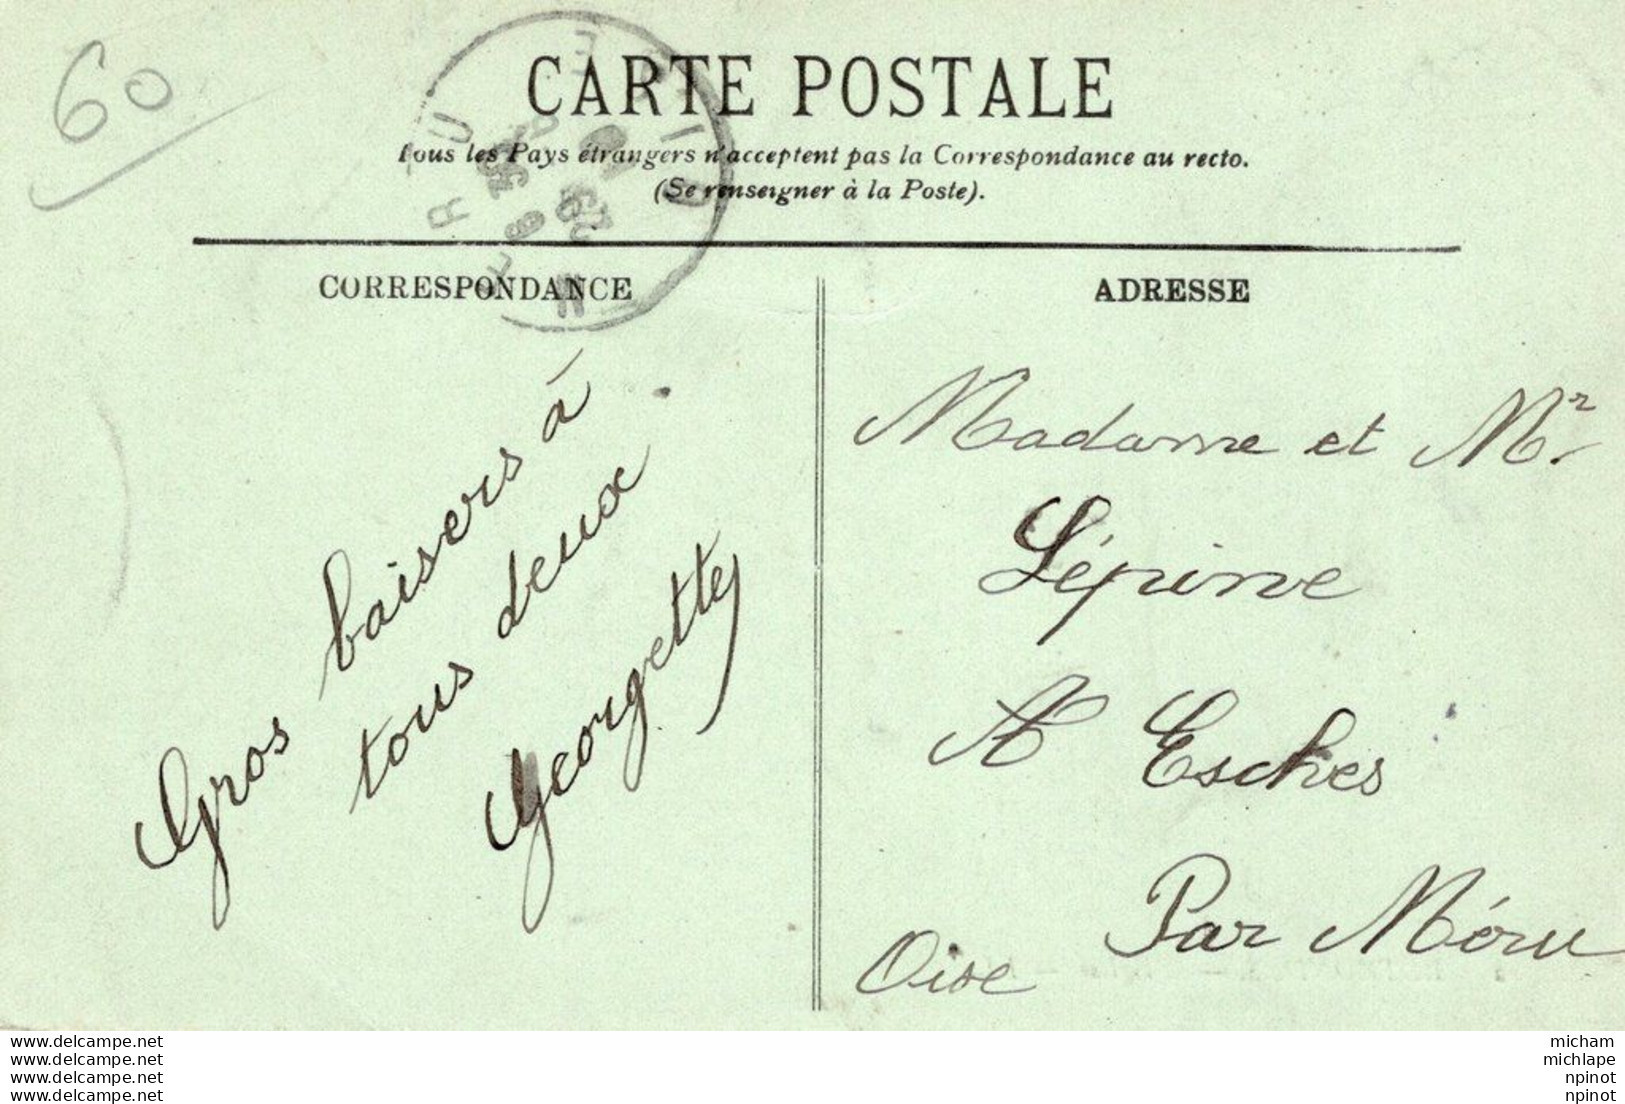 60
CARTE POSTALE
Tous les Pays étrangers n'acceptent pas la Correspondance au recto.
(Se renseigner à la Poste).
CORRESPONDANCE
Gros baisers à
tous deux.
Georgette
ADRESSE
Madame et Mr
Lépine
A Esches
Par Méru
Oise
www.delcampe.net
www.delcampe.net
www.delcampe.net
www.delcampe.net
micham
michlape
npinot
npinot